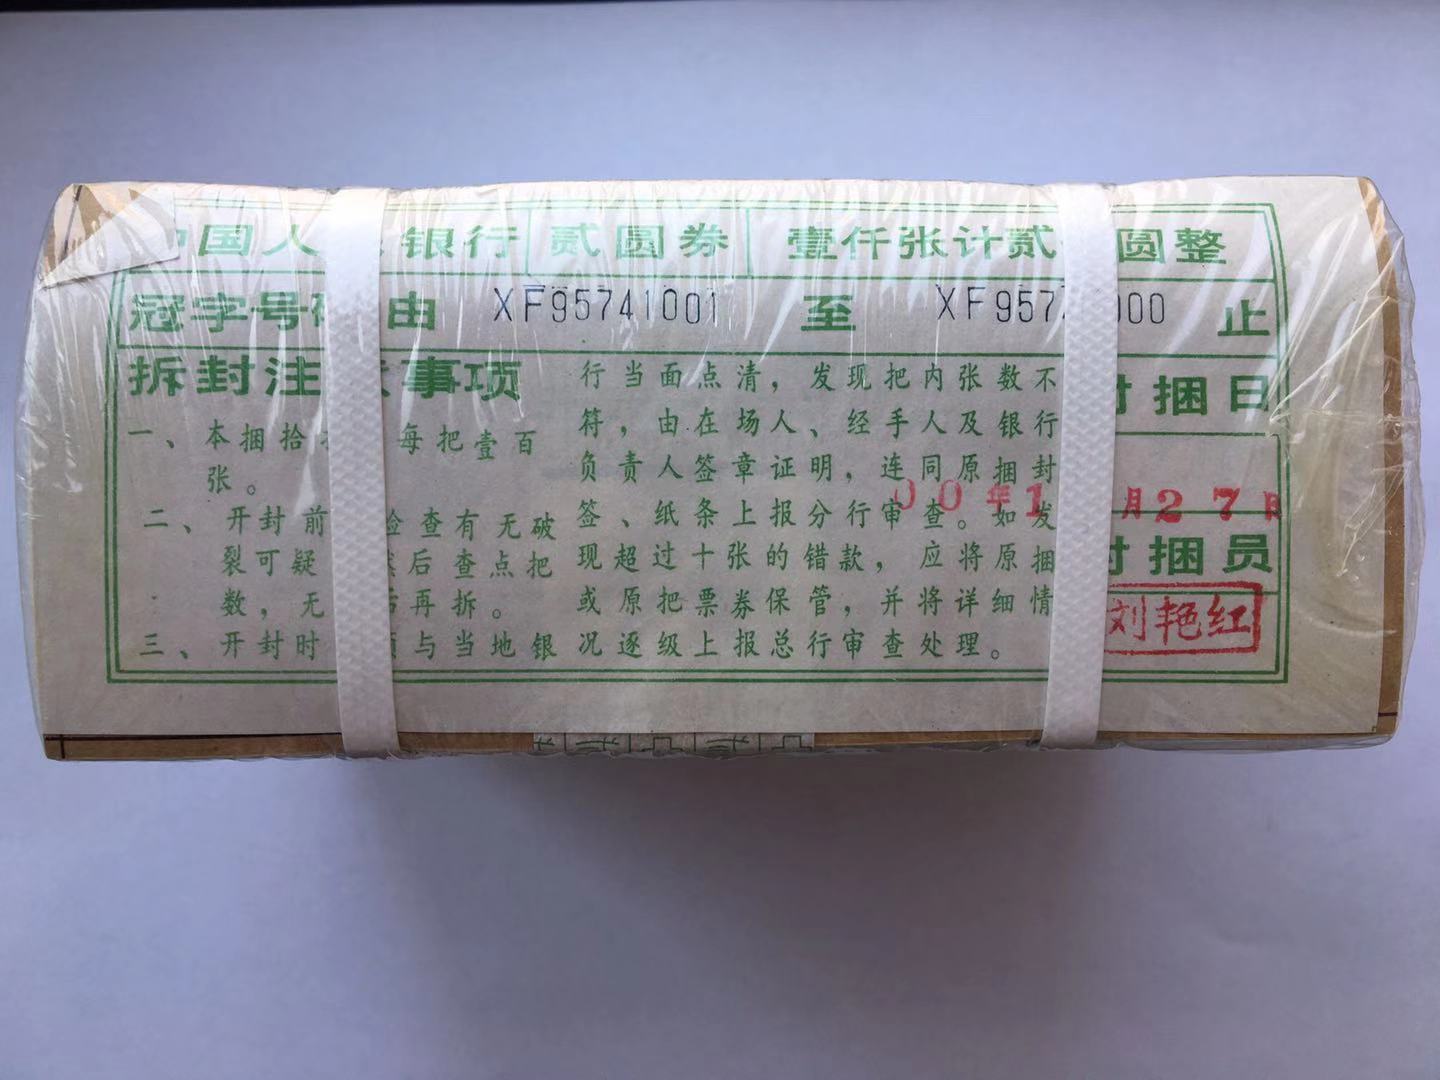 国人 银行 贰圆券 壹仟张计贰 圆整
冠字号 由 XF95741001 至 XF957 000 止
拆封注 事项
一、本捆拾 每把壹百
张。
二、开封前 检查有无破
裂可疑 然后查点把
数,无 后再拆。
三、开封时 须与当地银
行当面点清,发现把内张数不
符,由在场人、经手人及银行
负责人签章证明,连同原捆封
签、纸条上报分行审查。如发
现超过十张的错款,应将原捆
或原把票券保管,并将详细情
况逐级上报总行审查处理。
封捆日
00年1 月27日
封捆员
刘艳红